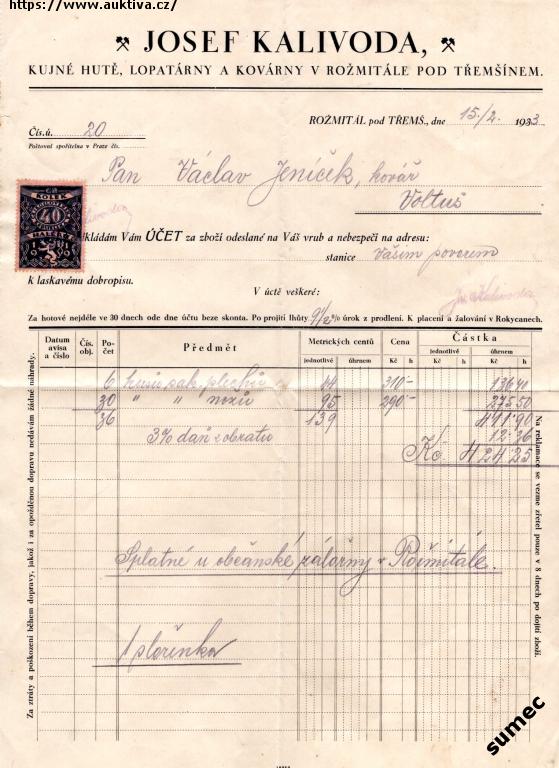 https://www.auktiva.cz/
JOSEF KALIVODA,
KUJNÉ HUTĚ, LOPATÁRNY A KOVÁRNY V ROŽMITÁLE POD TŘEMŠÍNEM.
ROŽMITÁL pod TŘEMŠ., dne 15./2. 1933
Čís. ú. 20
Poštovní spořitelna v Praze čís.
Pan Václav Jeníček, kovář
Voltuš
KOLEK
40
HALÉŘŮ
kládám Vám ÚČET za zboží odeslané na Váš vrub a nebezpečí na adresu:
stanice Vašim povozem
k laskavému dobropisu.
V úctě veškeré:
Jos. Kalivoda
Za hotové nejdéle ve 30 dnech ode dne účtu bez skonta. Po projití lhůty 9½% úrok z prodlení. K placení a žalování v Rokycanech.
Datum avisa a číslo Čís. obj. Počet Předmět Metrických centů Cena Částka
jednotlivě úhrnem Kč h jednotlivě úhrnem
Kč h Kč h
6 kusů pak. plechů 44 310- 136 40
30 " " nožů 95 290- 275 50
36 139 411·90
3% daň z obratu 12·36
Kč. 424·25
Splatné u občanské záložny v Rožmitále.
1 plošinka
Za ztráty a poškození během dopravy, jakož i za opožděnou dopravu nedávám žádné náhrady.
Na reklamace se vezme zřetel pouze v 8 dnech po dojití zboží.
sumec